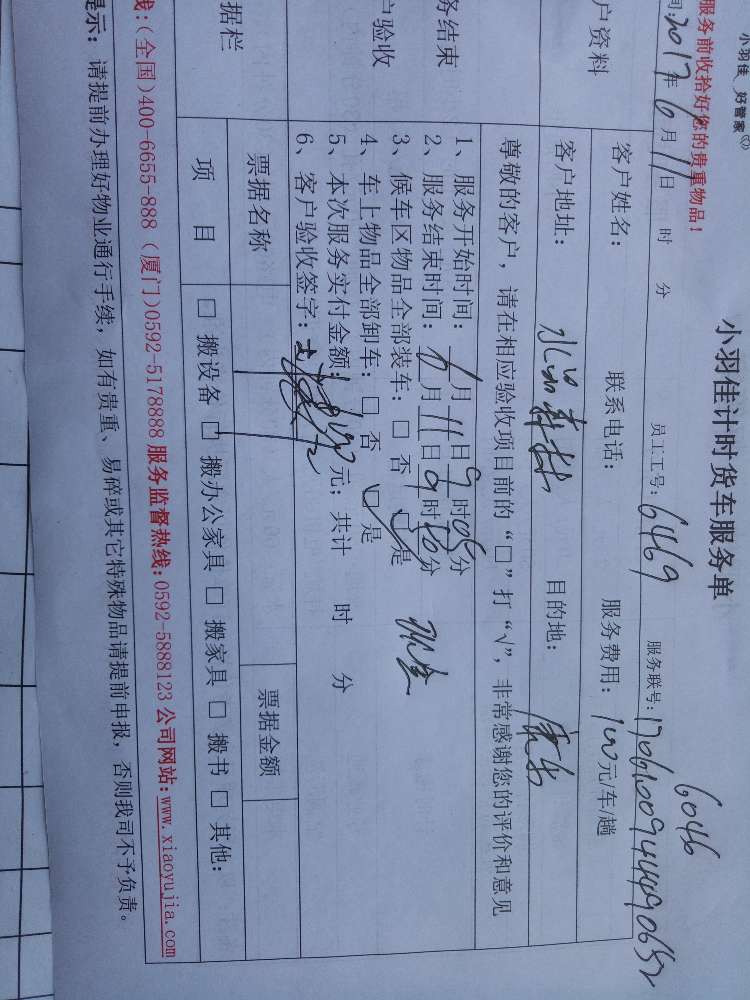 小羽佳 好管家
服务前收拾好您的贵重物品！
小羽佳计时货车服务单
6046
间:2017年6月11日 时 分 员工工号:6469 服务联号:
户资料 客户姓名: 联系电话: 服务费用:100元/车/趟
客户地址: 水晶森林 目的地:
尊敬的客户，请在相应验收项目前的“□”打“√”，非常感谢您的评价和意见
务结束
户验收
1、服务开始时间: 6月11日9时06分
2、服务结束时间: 6月11日9时分
3、候车区物品全部装车: □ 否 □ 是
4、车上物品全部卸车: □ 否 □ 是
5、本次服务实付金额: 元; 共计 时 分
6、客户验收签字:
据栏 票据名称 票据金额
项 目 □ 搬设备 □ 搬办公家具 □ 搬家具 □ 搬书 □ 其他:
线:(全国)400-6655-888 (厦门)0592-5178888 服务监督热线:0592-5888123 公司网站:www.xiaoyujia.com
提示: 请提前办理好物业通行手续，如有贵重、易碎或其它特殊物品请提前申报，否则我司不予负责。